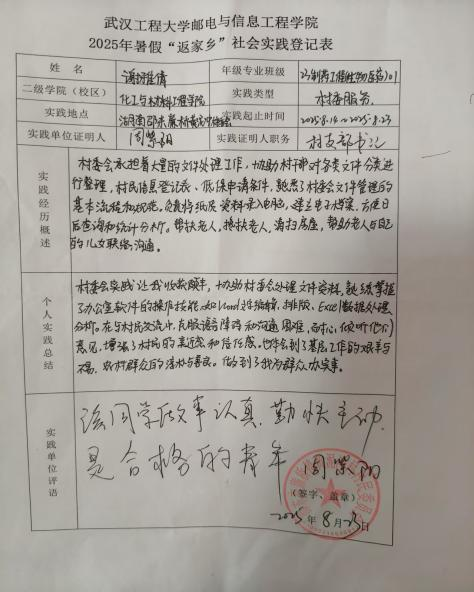 武汉工程大学邮电与信息工程学院
2025年暑假“返家乡”社会实践登记表
姓名 年级专业班级
二级学院（校区） 化工与材料工程学院 实践类型 村委服务
实践地点 实践起止时间 2025.8.14～2025.8.23
实践单位证明人 周紫阳 实践证明人职务 村支部书记
实践经历概述
村委会承担着大量的文件处理工作，协助村干部对各类文件分类进
行整理，村民信息登记表、低保申请条件，熟悉了村委会文件管理的
基本流程和规范。负责将纸质资料录入电脑，建立电子档案，方便日
后查询和统计分析。帮扶老人，搀扶老人，清扫房屋，帮助老人与自己
的儿女联络沟通。
个人实践总结
村委会实践让我收获颇丰，协助村委会处理文件资料，熟练掌握
了办公室软件的操作技能，如Word文档编辑、排版、Excel数据处理
分析。在与村民交流中，克服语言障碍和沟通困难，耐心倾听他们
意见，增强了村民的亲近感和信任感。也体会到了基层工作的艰辛与
不易，农村群众的淳朴与善良。做到了我为群众办实事。
实践单位评语
该同学做事认真，勤快主动，
是合格的青年 周紫阳
（签字、盖章）
2025年8月23日